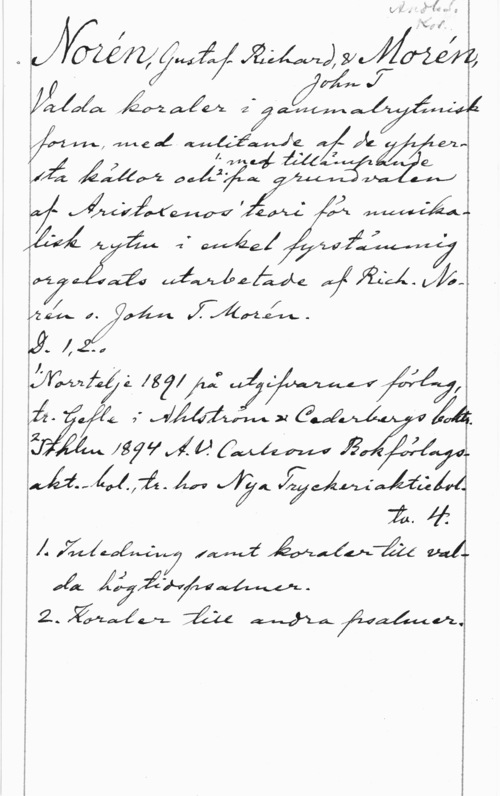 Andl. s.
Kor.
Norén, Gustaf Richard, & Morén,
John T
Valda koraler i gammalrytmisk
form, med anlitande af de ypper-
sta källor och 1: med tillämpande
2: på grundvalen
af Aristoxenos' teori för musika-
lisk rytm i enkel fyrstämmig
orgelsats utarbetade af Rich. No-
rén o. John T. Morén.
D. 1, 2.
1: Norrtelje 1891 på utgifvarnes förlag,
tr. Gefle i Ahlström & Cederbergs boktr.
2: Sthlm 1894 A.V. Carlsons Bokförlags-
akt.-bol., tr. hos Nya Tryckeriaktiebol.
tv. 4:
1. Inledning samt koraler till val-
da högtidspsalmer.
2. Koraler till andra psalmer.